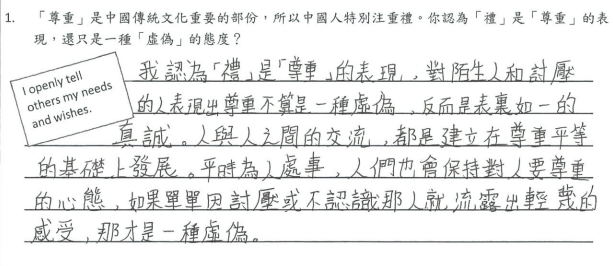 1. 「尊重」是中國傳統文化重要的部份，所以中國人特別注重禮。你認為「禮」是「尊重」的表
現，還只是一種「虛偽」的態度？
I openly tell
others my needs
and wishes.
我認為「禮」是「尊重」的表現，對陌生人和討壓
的人表現出尊重不算是一種虛偽，反而是表裏如一的
真誠。人與人之間的交流，都是建立在尊重平等
的基礎上發展。平時為人處事，人們也會保持對人要尊重
的心態，如果單單因討壓或不認識那人就流露出輕蔑的
感受，那才是一種虛偽。